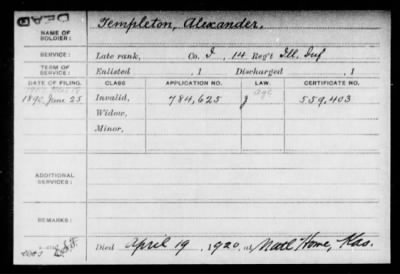 DEAD
NAME OF SOLDIER: Templeton, Alexander.
SERVICE: Late rank, Co. I, 14 Reg't Ill. Inf
TERM OF SERVICE: Enlisted , 1 Discharged , 1
DATE OF FILING. CLASS APPLICATION NO. LAW. CERTIFICATE NO.
age
1890, June 25 Invalid, 784,625 J 559,403
Widow,
Minor,
ADDITIONAL SERVICES:
REMARKS:
Died April 19, 1920, at Natl Home, Kas.